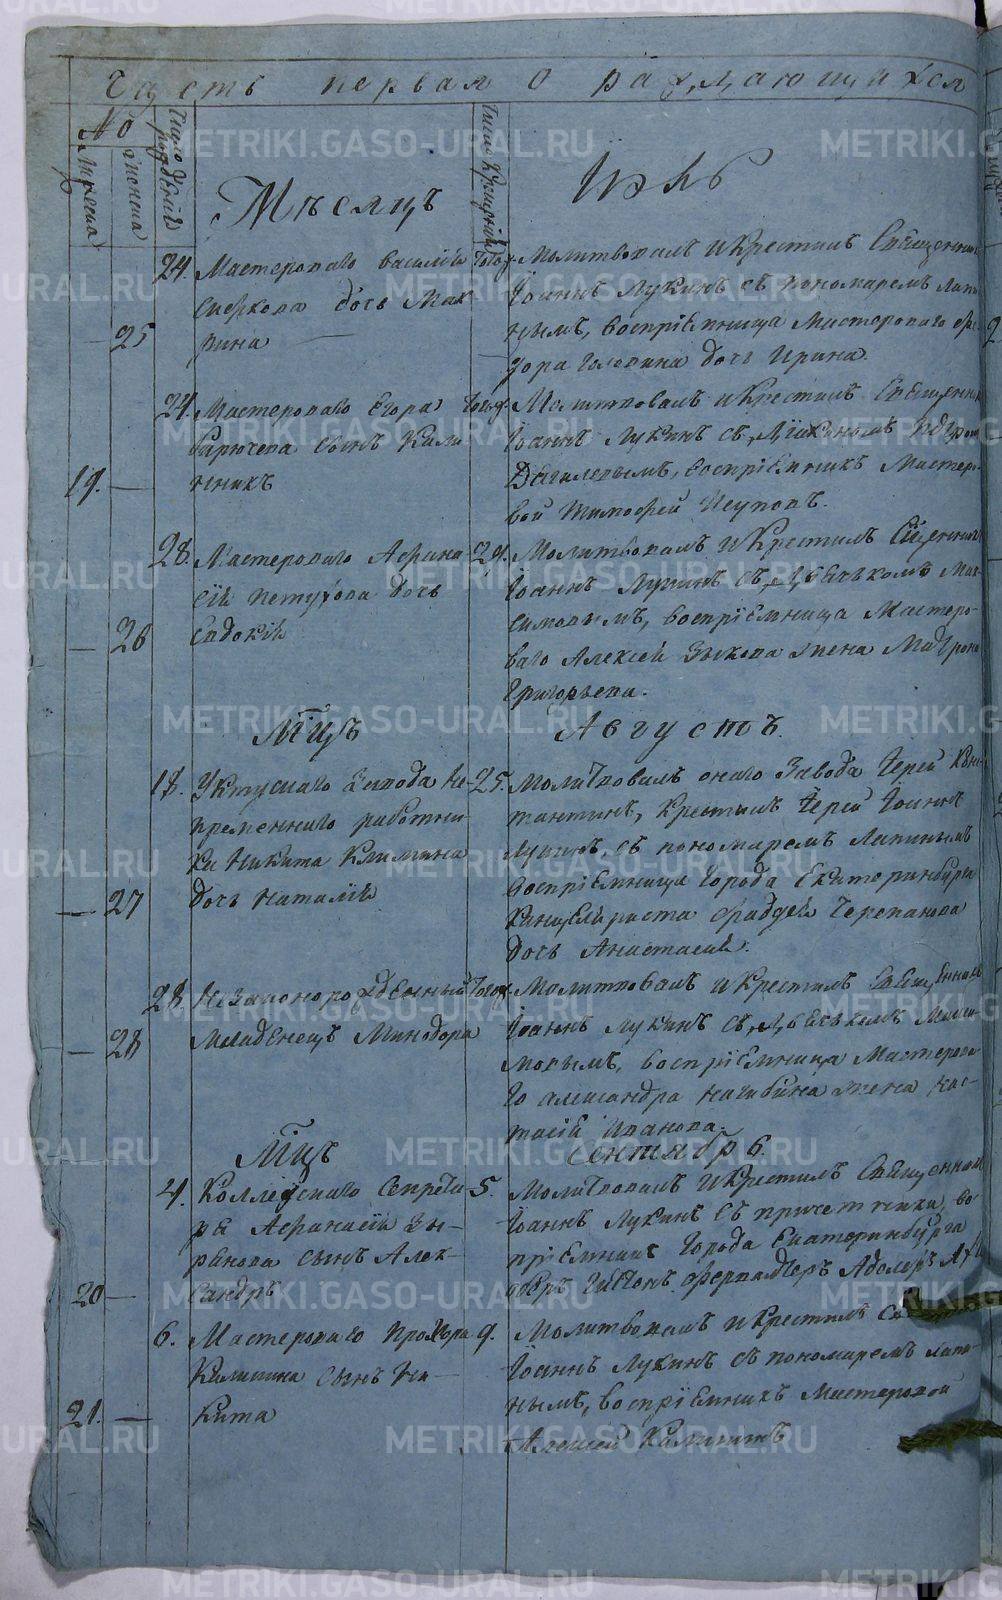 Часть первая о раждающихся
№
Мужеска
Женска
Число рожденія
Мѣсяцъ
Число Крещенія
Іюль
24. Мастероваго Василія
дочь Мак
25 рина
Тогож Молитвовалъ и Крестилъ Священникъ
Іоаннъ Лукинъ съ пономаремъ Лапи
нымъ, воспріемница Мастероваго Фео
дора Головина дочь Ирина.
24. Мастероваго Егора
сынъ Кали
19. никъ
Тогож Молитвовалъ и Крестилъ Священникъ
Іоаннъ Лукинъ съ
воспріемникъ Мастеро
вой Тимофей
28. Мастероваго Афана
сія Петухова дочь
26 Евдокія
29. Молитвовалъ и Крестилъ Священникъ
Іоаннъ Лукинъ съ Дьячкомъ Мак
симовымъ, воспріемница Мастеро
ваго Алексѣя Зыкова жена Матрона
Григорьева.
Мцъ
Августъ.
18. Уктускаго Завода не
пременнаго работни
ка Никиты Климина
27 дочь Наталія
25. Молитвовалъ онаго Завода Іерей Конс
тантинъ, Крестилъ Іерей Іоаннъ
Лукинъ съ пономаремъ Лапинымъ
воспріемница Города Екатеринбурга
Канцеляриста Фаддея Черепанова
дочь Анастасія.
28. Незаконорожденный
28 младенецъ Минодора
Тогож Молитвовалъ и Крестилъ Священникъ
Іоаннъ Лукинъ съ Дьячкомъ Макси
мовымъ, воспріемница Мастерова
го Александра Нагибина жена Нас
тасія Иванова.
Мцъ
Сентябрь.
4. Коллежскаго Секрета
ря Афанасія Зы
рянова сынъ Алек
20 сандръ
5. Молитвовалъ и Крестилъ Священникъ
Іоаннъ Лукинъ съ причетники, вос
пріемникъ Города Екатеринбурга
6. Мастероваго Прохора
Калинина сынъ Ни
21. кита
9. Молитвовалъ и Крестилъ
Іоаннъ Лукинъ съ пономаремъ Лапи
нымъ, воспріемникъ Мастеровой
Алексей Калининъ